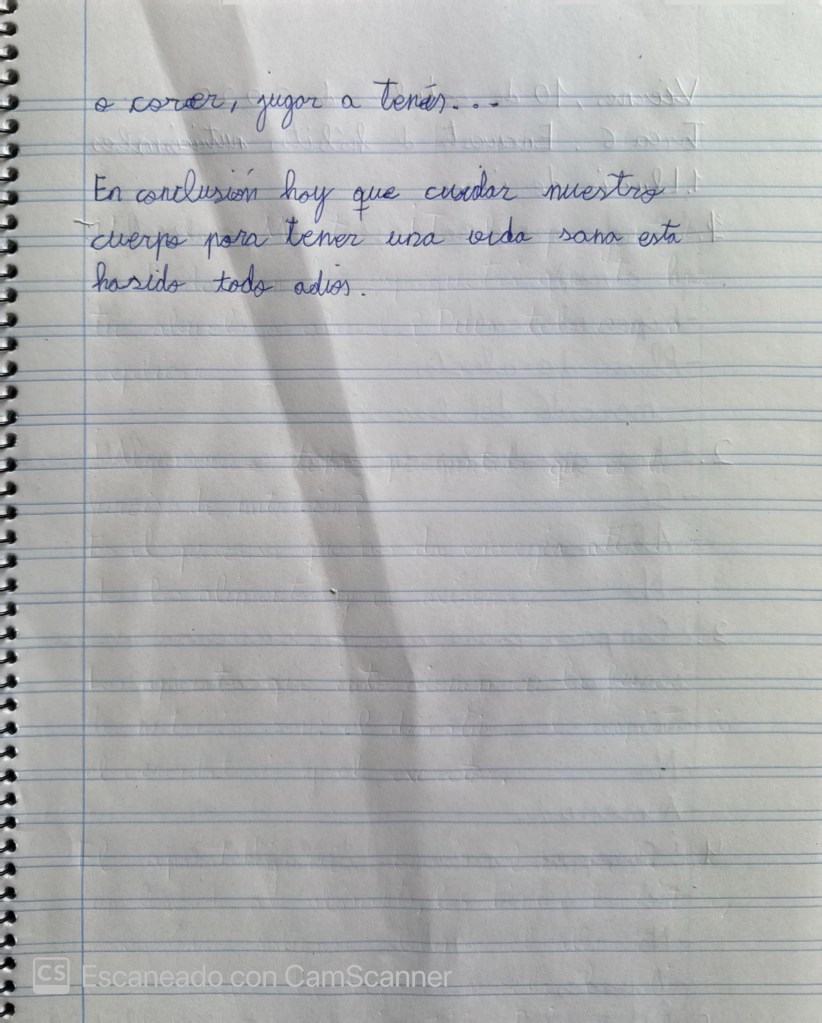 o correr, jugar a tenis...
En conclusión hay que cuidar nuestro
cuerpo para tener una vida sana esta
hasido todo adios.
CS Escaneado con CamScanner